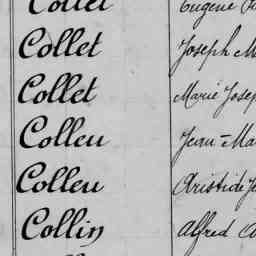 Collet Eugène
Collet Joseph M
Collet Marie Josep
Colleu Jean-Ma
Colleu Aristide J
Collin Alfred